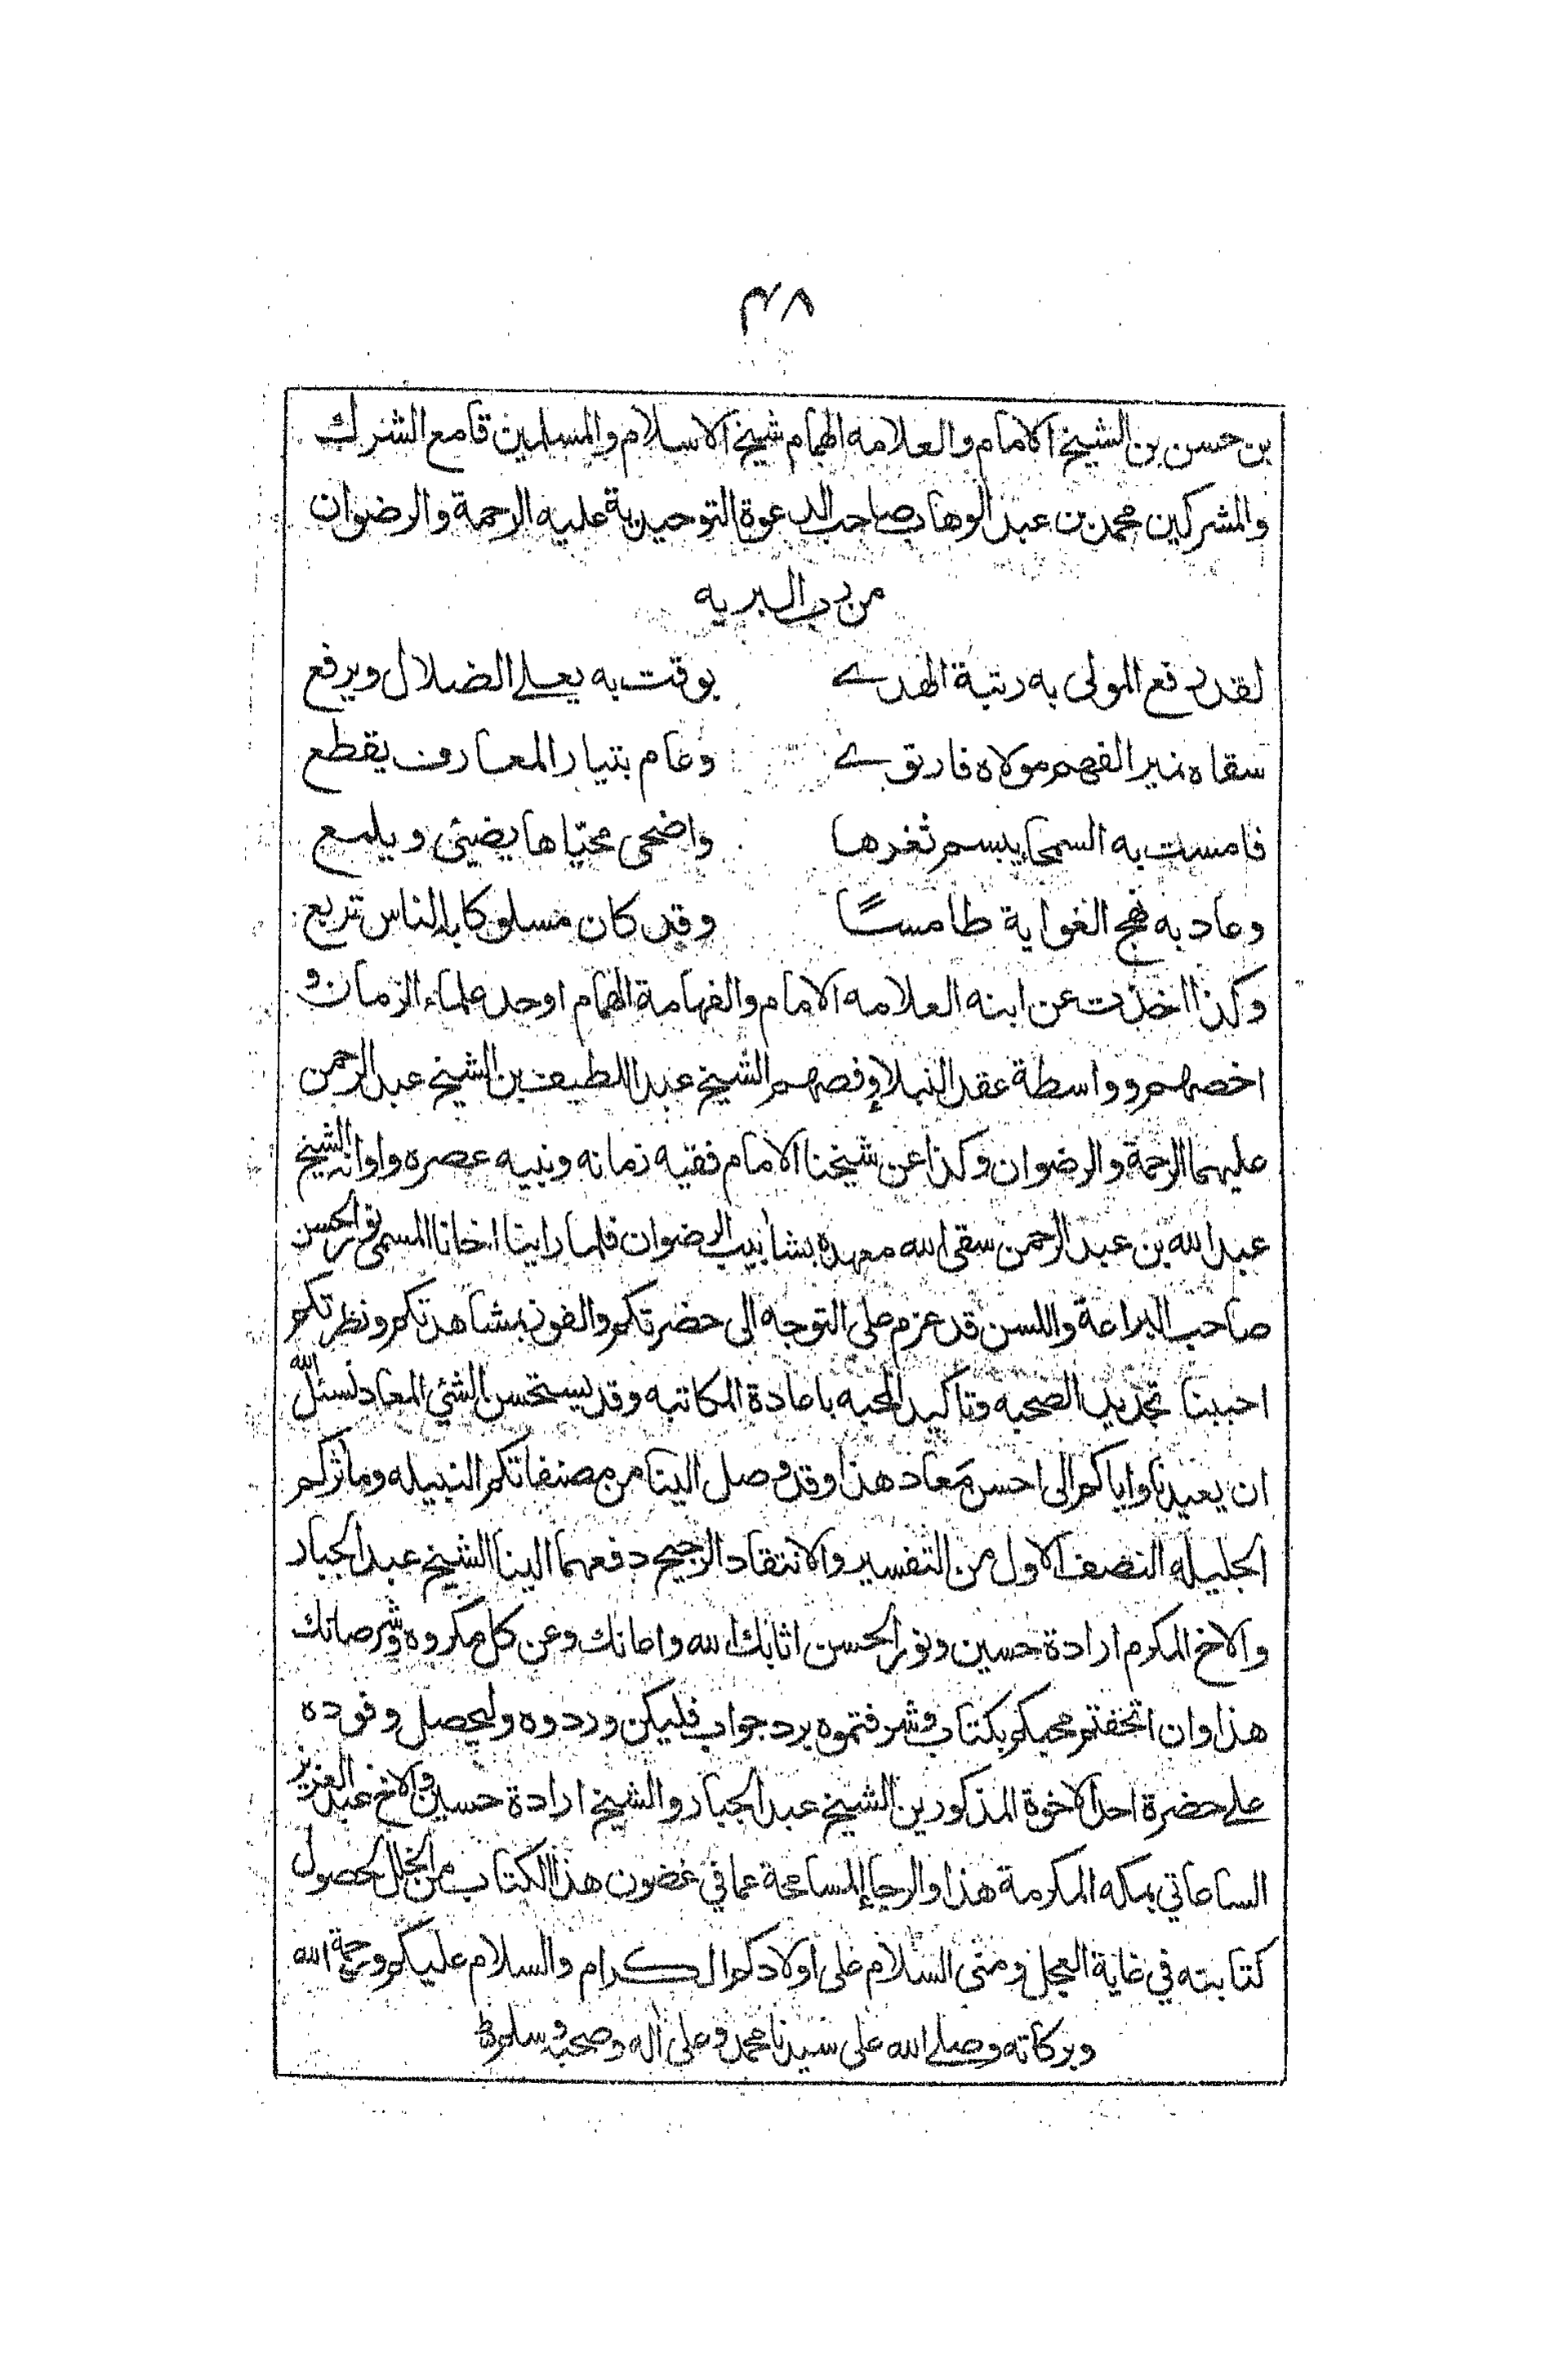 ۴۸
بن حسن بن الشيخ الامام والعلامه الهمام شيخ الاسلام والمسلمين قامع الشرك
والمشركين محمد بن عبد الوهاب صاحب الدعوة التوحيدية عليه الرحمة والرضوان
من رب البريه
لقد رفع المولى به رتبة الهدے بوقت به يعلے الضلال ويرفع
سقاه نمير الفهم مولاه فارتوے وعام بتيار المعارف يقطع
فامست به السمحاء يبسم ثغرها واضحى محيّاها يضيئ ويلمع
وعاد به نهج الغواية طامسًا وقد كان مسلوكا به الناس تربع
وكذا اخذت عن ابنه العلامه الامام والفهامة الهمام اوحد علماء الزمان و
اخصهم وواسطة عقد النبلاء وفصهم الشيخ عبد اللطيف بن الشيخ عبد الرحمن
عليهما الرحمة والرضوان وكذا عن شيخنا الامام فقيه زمانه ونبيه عصره واوانه الشيخ
عبد الله بن عبد الرحمن سقى الله معهده بشأبيب الرضوان فلما راينا اخانا المسمى نور الحسن
صاحب البراعة واللسن قد عزم على التوجه الى حضرتكم والفوز بمشاهدتكم ونظرتكم
احببنا تجديد الصحبه وتاكيد المحبه باعادة المكاتبه وقد يستحسن الشئي المعاد نسئل الله
ان يعيدنا واياكم الى احسن مَعاد هذا وقد وصل الينا من مصنفاتكم النبيله ومأثركم
الجليله النصف الاول من التفسير والانتقاد الرجيح دفعهما الينا الشيخ عبد الجبار
والاخ المكرم ارادة حسين ونور الحسن اثابك الله واعانك وعن كل مكروه وشر صانك
هذا وان اتحفتم محبكم بكتاب وشرفتموه برد جواب فليكن وردوه وليحصل وفوده
علے حضرة احد الاخوة المذكورين الشيخ عبد الجبار والشيخ ارادة حسين والاخ عبد العزيز
الساعاتي بمكه المكرمة هذا والرجاء المسامحة عما في غضون هذا الكتاب من الخلل لحصول
كتابته في غاية العجل ومنى السلام على اولادكم الكرام والسلام عليكم ورحمة الله
وبركاته وصلے الله على سيدنا محمد وعلى اله وصحبه وسلم